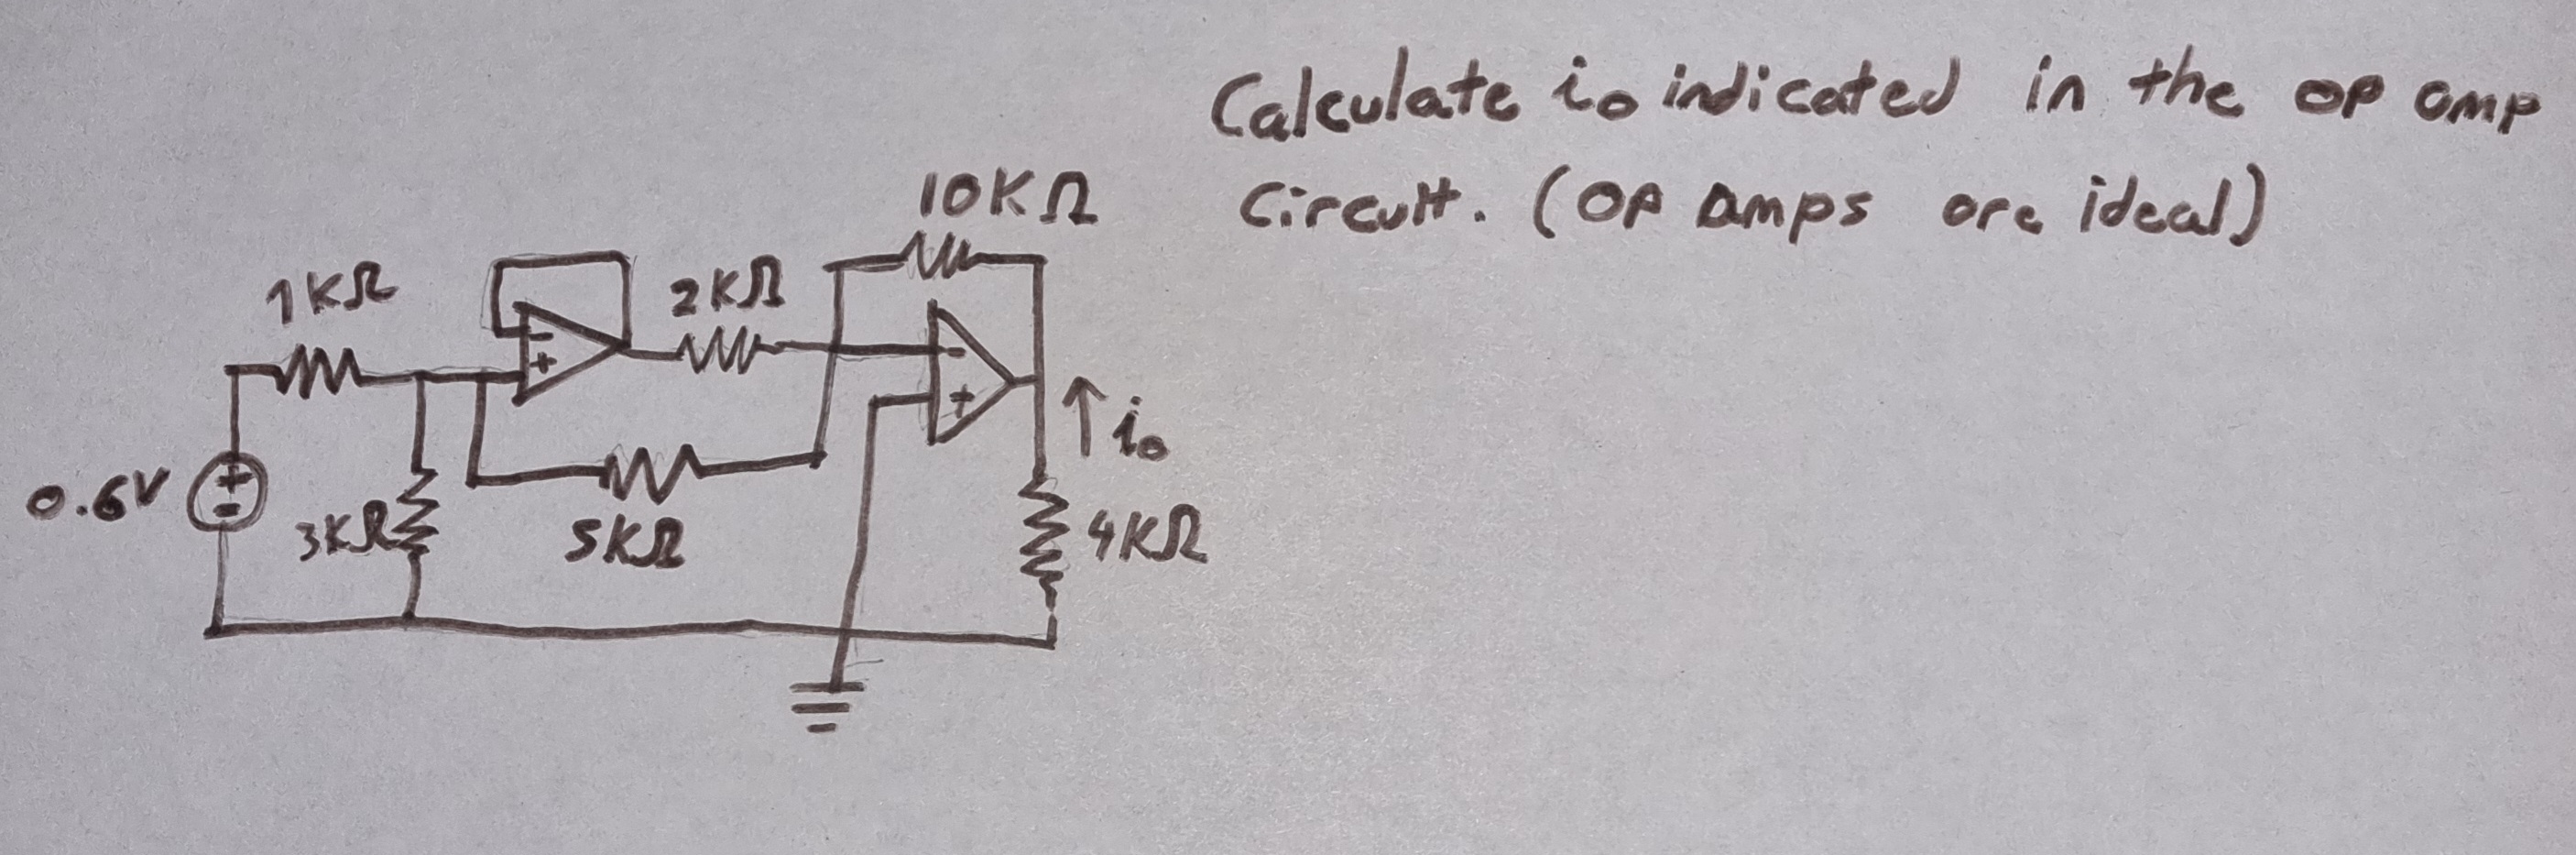 Calculate io indicated in the op amp
Circuit. (OP Amps are ideal)
10KΩ
1KΩ
2KΩ
-
+
-
+
io
0.6V
+
-
3KΩ
5KΩ
4KΩ